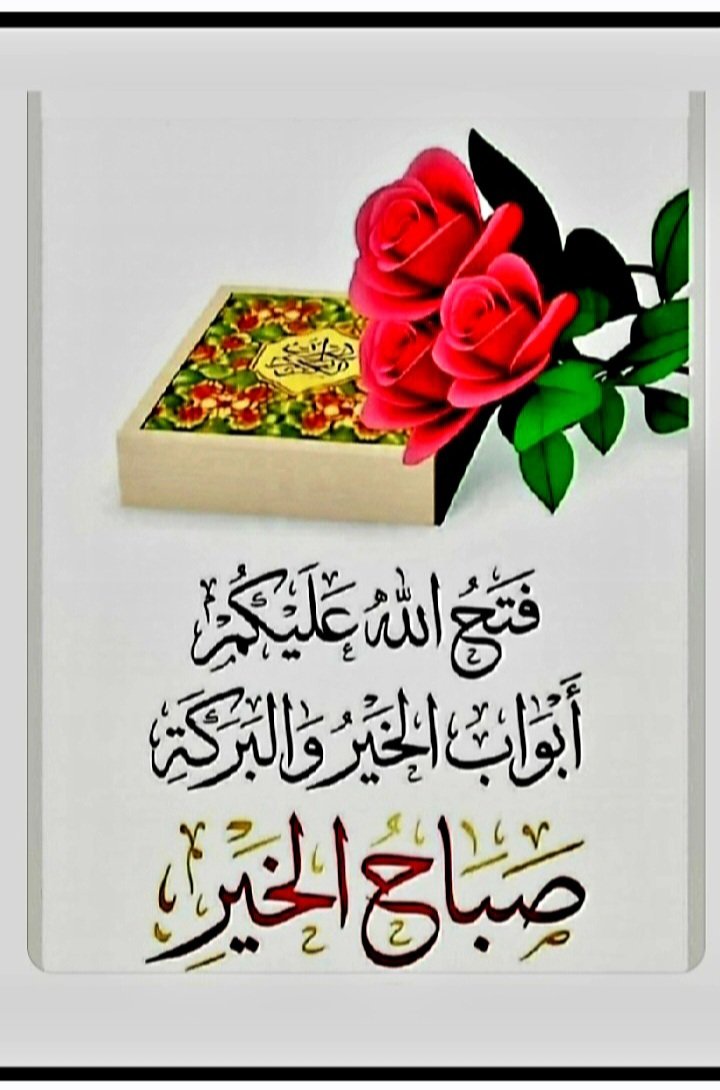 فَتَحُ اللّٰهُ عَلَيْكُمْ
أَبْوَابَ الخَيْرُ وَالبَرَكَةِ
صَبَاحُ الخَيْرِ